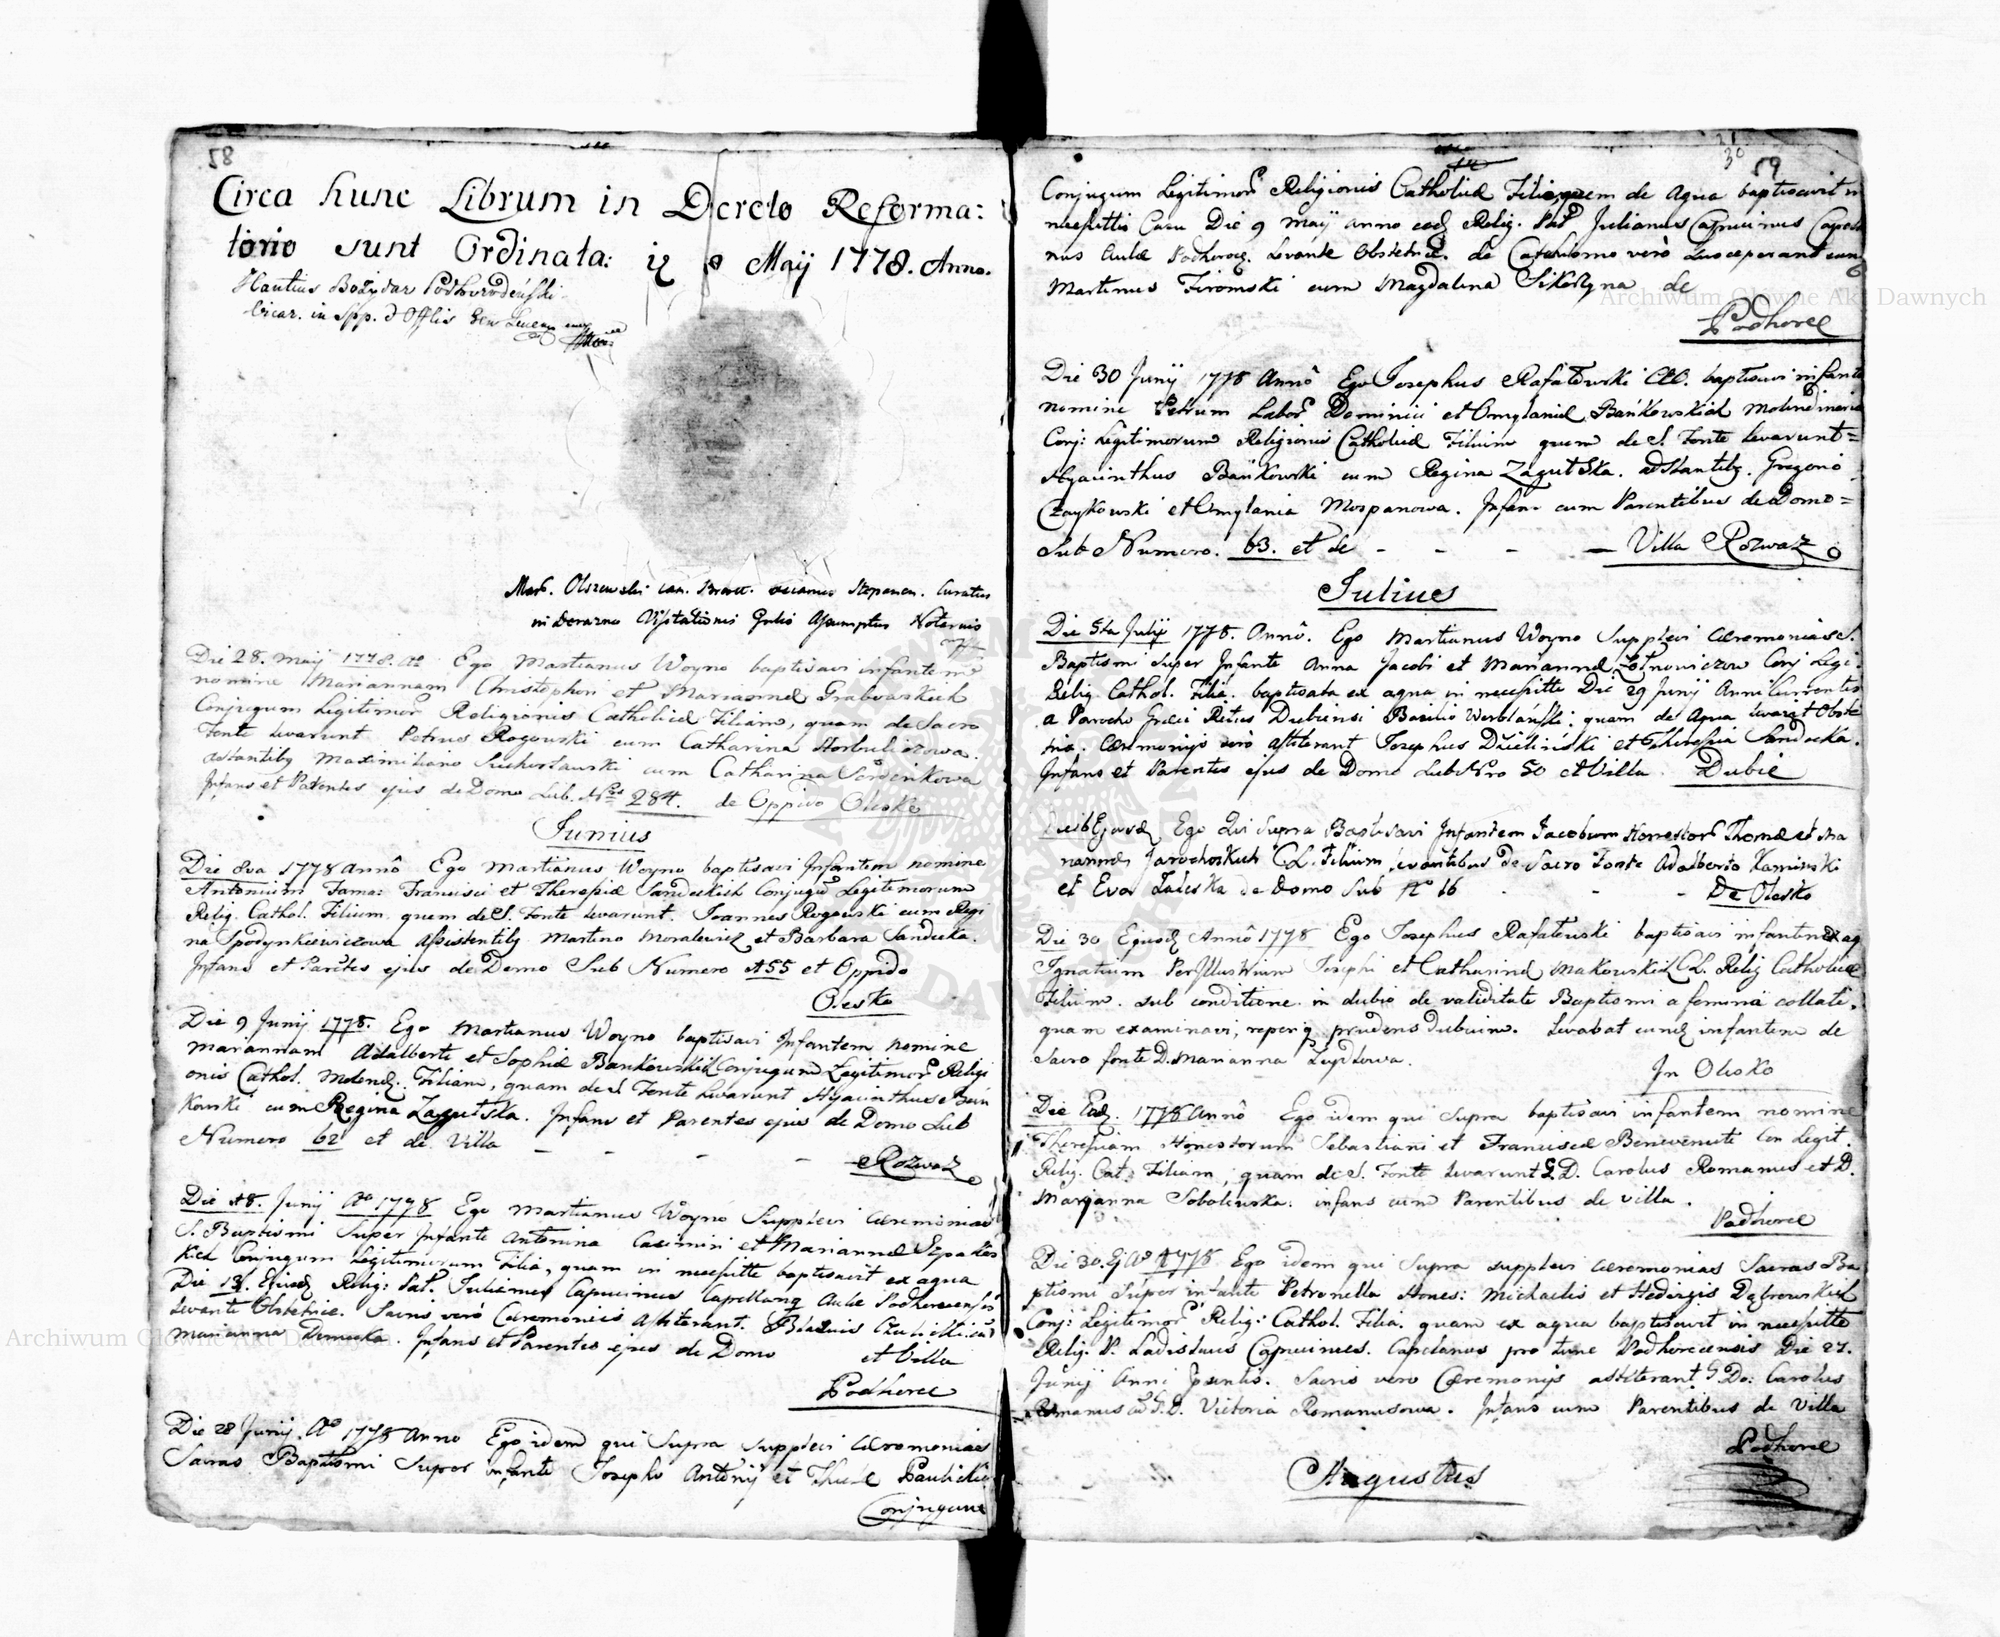 58
Circa hunc Librum in Decreto Reforma:
torio sunt Ordinata: 8 Maij 1778. Anno.
Bożydar Podhorodeński
in Spp. Offlis
Olszewski can. Curatus
in Visitationis Assumptus Notarius
Die 28. Maij 1778. Ao Ego Martianus Woyno baptisavi infantem
nomine Mariannam Christophori et Mariannæ Grabowskich
Conjugum Legitimor Religionis Catholicæ Filiam, quam de Sacro
Fonte levarunt Petrus Rogowski cum Catharina Horbulczowa.
astantibq Maximiliano Suchosławski cum Catharina
Infans et Parentes ejus de Domo Sub. Nro 284. de Oppido Olesko
Junius
Die 8va 1778 Annô Ego Martianus Woyno baptisavi Infantem nomine
Antonium Fama: Francisci et Theresiæ Sandeckich Conjugû Legitimorum
Relig. Cathol. Filium quem de S. Fonte levarunt. Joannes Rogowski cum Regi
na Spodynkiewiczowa Assistentibq Martino et Barbara Sandecka.
Infans et Parêtes ejus de Domo Sub Numero 155 et Oppido
Olesko
Die 9 Junij 1778. Ego Martianus Woyno baptisavi Infantem nomine
Mariannam Adalberti et Sophiæ Bankowskich Conjugum Legitimor Religi
onis Cathol. Molend. Filiam, quam de S Fonte levarunt Hyacinthus Bań
kowski cum Regina Zagutska. Infans et Parentes ejus de Domo Sub
Numero 62 et de Villa - - - - Rozważ
Die 18. Junij Ao 1778 Ego Martianus Woyno Supplevi Cæremonias
S. Baptismi Super Infante Antonina Casimiri et Mariannæ
kich Conjugum Legitimorum Filia, quam in necessitte baptisavit ex aqua
Die 13. Ejusd Relig: Pat. Julianus Capucinus Capellanq Aulæ Podhorecensis
Levante Obstetrice. Sacris verò Cæremoniis Assiterant. Blasius
Marianna. Infans et Parentes ejus de Domo et Villa
Podhorce
Die 28 Junij. Ao 1778 Anno Ego idem qui Supra Supplevi Cæremonias
Sacras Baptismi Super infante Josepho Antonij et
Conjugum
59
Conjugum Legitimor Religionis Catholicæ Filio quem de Aqua baptisavit in
necessittis Casu Die 9 Maij anno eod Relig. Pat Julianus Capucinus Capella
nus Aulæ Levante Obstetrice. de Catechismo verò Susceperant eum
Martinus cum Magdalena de
Podhorce
Die 30 Junij 1778 Annô Ego Josephus Rafałowski baptisavi infante
nomine Petrum Labor Dominici et Omylaniæ Bańkowskich
Conj: Legitimorum Religionis Catholicæ Filium quem de S. Fonte levarunt=
Hyacinthus Bańkowski cum Regina Zagutska. adstantibq. Gregorio
Czaykowski et Omylania Mospanowa. Infans cum Parentibus de Domo=
Sub Numero. 63. et de - - - - Villa Rozważ
Julius
Die 5ta Julij 1778. Annô. Ego Martianus Woyno Supplevi Cæremonias S.
Baptismi Super Infante Anna Jacobi et Mariannæ Conj Legi.
Relig. Cathol. Filia. baptisata ex aqua in necessitte Die 29 Junij Anni Currentis
a Parocho Græci Ritus Dubiensi Basilio quam de Aqua levavit Obste
trix. Cæremonijs verò Assiterant Josephus Dzieliński et Theresia Sandecka.
Infans et Parentes ejus de Domo Sub Nro 50 et Villa Dubie
Ejusd Ego Qui Supra Baptisavi Infantem Jacobum Honestor Thomæ et Ma
riannæ C.L. Filium, Levantibus De Sacro Fonte Adalberto Kaminski
et Eva de Domo Sub No 16 - - - De Olesko
Die 30 Ejusd Annô 1778 Ego Josephus Rafałowski baptisavi infantem ex aq
Ignatium Perillustrium Josephi et Catharinæ Makowskich C.L. Relig Catholicæ
Filium. sub conditione in dubio de validitate Baptismi a feminâ collati.
quam examinavi, reperiq prudens dubium. Levabat eund infantem de
Sacro fonte D. Marianna
In Olesko
Die Ead. 1778 Annô Ego idem qui Supra baptisavi infantem nomine
Theresiam Honestorum Sebastiani et Franciscæ Benevenute Con Legit.
Relig. Cat. Filiam, quam de S. Fonte levarunt G.D. Carolus Romanus et D.
Marjanna Sobolewska. infans cum Parentibus de villa.
Podhorce
Die 30. Ej Ao 1778 Ego idem qui Supra supplevi cæremonias Sacras Ba
ptismi Super infante Petronella Hones: Michaelis et Hedvigis Dąbrowskich
Conj: Legitimor Relig: Cathol. Filia. quam ex aqua baptisavit in necessitte
Relig. P. Ladislaus Capucinus. Capelanus pro tunc Podhorecensis Die 27.
Junij Anni psentis. Sacris vero Cæremonijs astiterant G.D. Carolus
Romanus cû G.D. Victoria Romanusowa. Infans cum Parentibus de Villa
Podhorce
Augustus
Archiwum Główne Akt Dawnych
Archiwum Główne Akt Dawnych